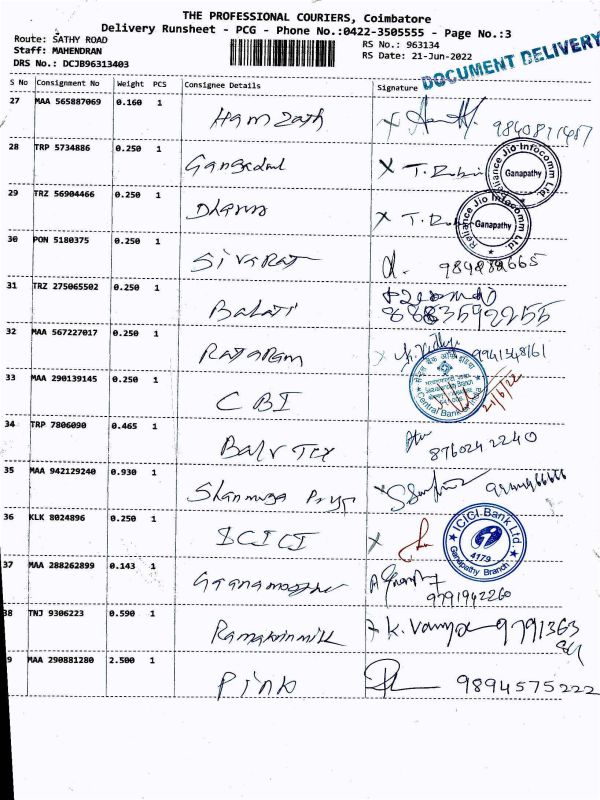 THE PROFESSIONAL COURIERS, Coimbatore
Delivery Runsheet - PCG - Phone No.:0422-3505555 - Page No.:3
Route: SATHY ROAD
Staff: MAHENDRAN
DRS No.: DCJB96313403
RS No.: 963134
RS Date: 21-Jun-2022
DOCUMENT DELIVERY
S No Consignment No Weight PCS Consignee Details Signature
27 MAA 565887069 0.160 1 Hamzath
28 TRP 5734886 0.250 1
Reliance Jio Infocomm Ltd. Ganapathy
29 TRZ 56904466 0.250 1
Reliance Jio Infocomm Ltd. Ganapathy
30 PON 5180375 0.250 1 SivaRaj
31 TRZ 275065502 0.250 1 Balaji
8883592255
32 MAA 567227017 0.250 1 Rajaram 9941348161
33 MAA 290139145 0.250 1 CBI
Central Bank of India
21/6/22
34 TRP 7806090 0.465 1 Balu Tex
876024 2240
35 MAA 942129240 0.930 1 Shanmuga Priya
36 KLK 8024896 0.250 1 ICICI
ICICI Bank Ltd. 4179 Ganapathy Branch
37 MAA 288262899 0.143 1
9791942260
38 TNJ 9306223 0.590 1 9791363
9 MAA 290881280 2.500 1 Pink 9894575222